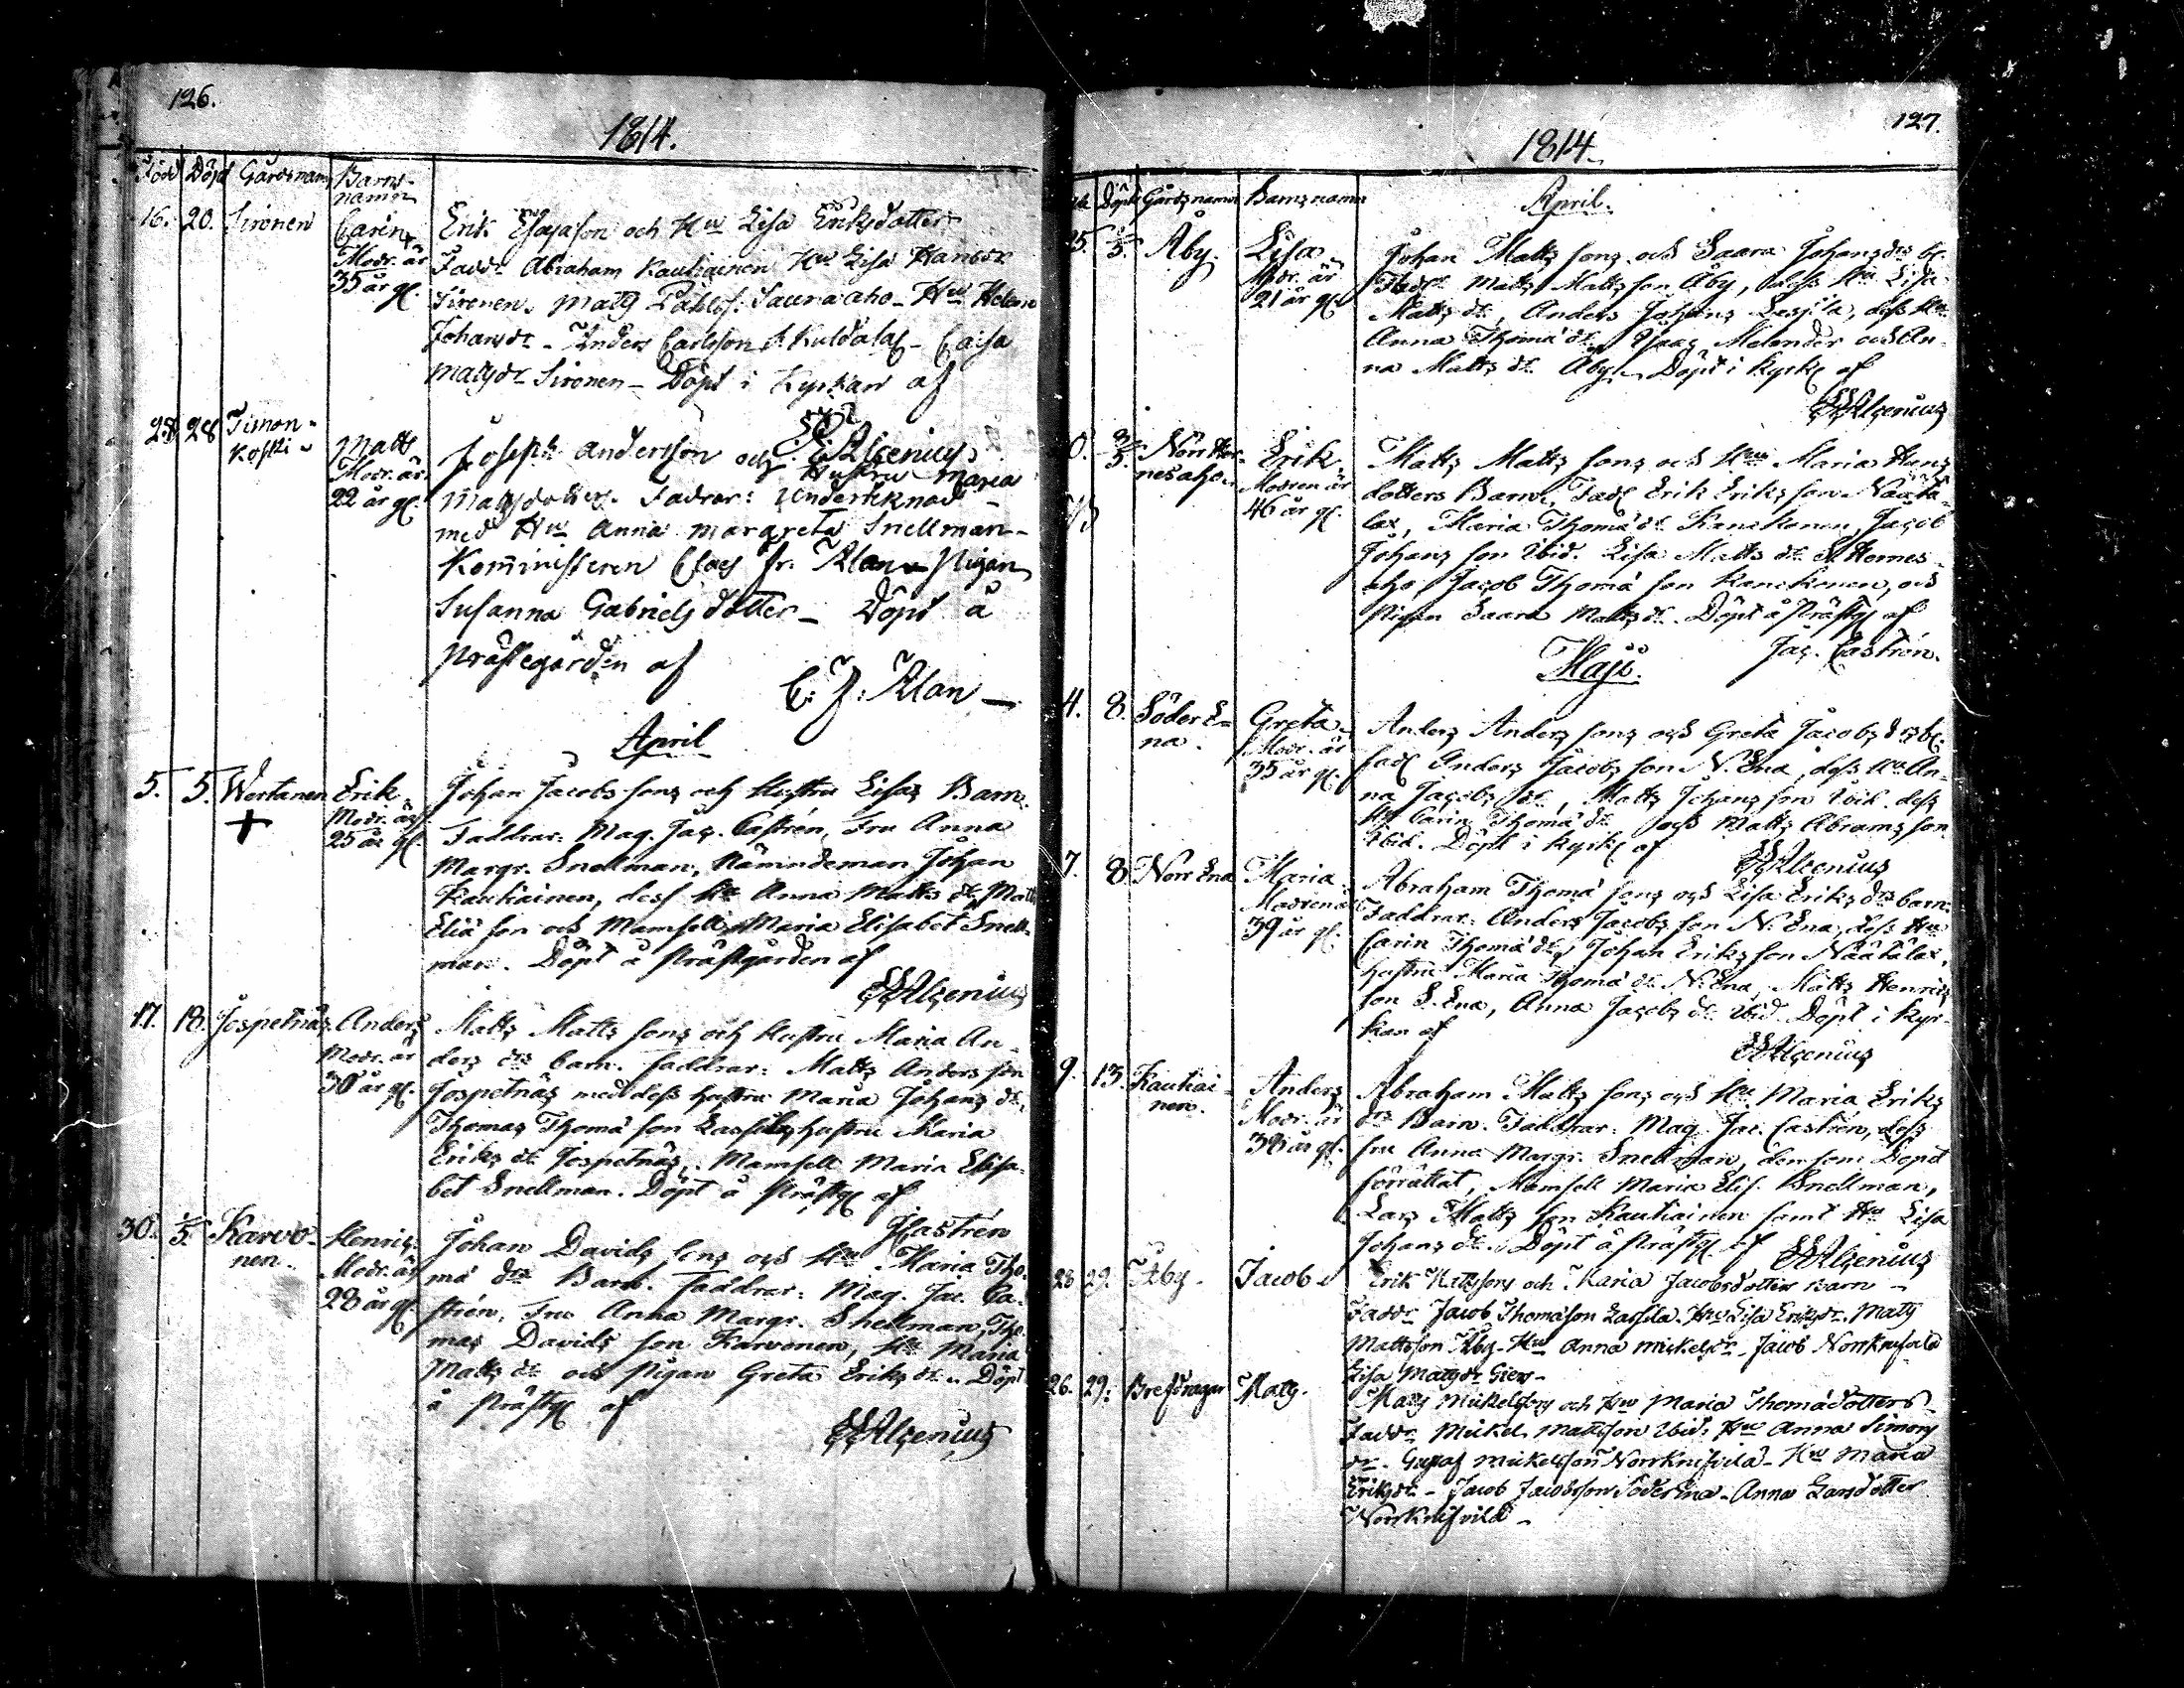 126.
1814.
Född Döpt Gårdsnam Barns-
namn
16. 20. Sironen Carin Erik Esajason och Hu Lisa Eriksdotter
Modr. är Faddr. Abraham Kautiainen Hu Lisa Hansdr
35 år gl. Sironen. Matts Påhlss. Saunaaho - Hu Helena
Johansdr - Anders Carlsson Kuldalax - Caisa
Matsdr Sironen - Döpt i Kyrkan af
Algenius
28 28 Timon- Matts Joseph Andersson och Hustru Maria
koski Modr. är Mattsdotters. Fadrar: Undertecknad
22 år gl. med Hu Anna Margreta Snellman -
Komministeren Claes Fr. Alan Pigan
Susanna Gabriels dotter - Döpt å
Prästegården af
C. F. Alan -
April
5. 5. Wertanen Erik Johan Jacobs sons och Hustru Lisas Barn.
Modr. är Faddrar: Mag. Jac. Castrén, Fru Anna
25 år gl. Margr. Snellman, Nämndeman Johan
Kautiainen, dess Hu Anna Matts dr Matts
Eliä son och Mamsell Maria Elisabet Snell-
man. Döpt å Prästgården af
Algenius
17. 18. Jospetnäs Anders Matts Matts sons och Hustru Maria An-
Modr. är ders drs barn. faddrar: Matts Anders son
30 år gl. Jospetnäs med dess hustru Maria Johans dr,
Thomas Thomä son Lassila hustru Maria
Eriks dr Jospetnäs, Mamsell Maria Elisa-
bet Snellman. Döpt å Prästg af
J Castrén
30. 1/5. Karvo- Henric Johan Davids sons och Hu Maria Tho-
nen. Modr. är mä drs Barn. faddrar: Mag. Jac. Ca-
28 år gl. strén, Fru Anna Margr. Snellman, Tho-
mas Davids son Karvonen, Hu Maria
Matts dr och Pigan Greta Eriks dr. Döpt
å Prästg af
Algenius
127.
1814.
Döpt Gårdsnamn Barnsnamn
April.
25. 1/5. Åby. Lisa Johan Matts sons och Saara Johans drs b.
Modr. är Fadd. Matts Mattsson Åby, dess Hu Lisa
21 år gl. Matts dr, Anders Johans Lesjila, dess Hu
Anna Thomä dr Isaac Melender och An-
na Matts dr Åby. Döpt i kyrk af
Algenius
Norr Her- Erik. Matts Matts sons och Hu Maria Hans
nesaho. Modren är dotters Barn. Fadd Erik Eriks son Näätä-
46 år gl. lax, Maria Thomä dr Kanckanen, Jacob
Johans son ibid. Lisa Matts dr S Hernes-
aho, Jacob Thomä son Kanckanen, och
Pigan Saara Matts dr. Döpt å Prästg af
Jac. Castrén.
Maji.
4. 8. Söder E- Greta Anders Anders sons och Greta Jacobs drs b.
na. Modr. är fadd Anders Jacobs son N. Ena, dess Hu An-
35 år gl. na Jacobs dr, Matts Johans son ibid. dess
Hu Carin Thomä dr och Matts Abrams son
ibid. Döpt i kyrk af
Algenius
7. 8 Norr Ena Maria Abraham Thomä sons och Lisa Eriks drs barn.
Modren är Faddrar: Anders Jacobs son N. Ena, dess Hu
39 år gl. Carin Thomä dr, Johan Eriks son Näätälax,
hustru Maria Thomä dr N. Ena, Matts Henrics
son S. Ena, Anna Jacobs dr ibid. Döpt i kyr-
kan af
Algenius
9. 13. Kautiai- Anders Abraham Matts sons och Hu Maria Eriks
nen. Modr. är drs Barn. Faddrar: Mag. Jac. Castrén, dess
fru Anna Margr. Snellman, den som Döpt
förrättat, Mamsell Maria Elis. Snellman,
Lars Matts son Kautiainen samt Hu Lisa
Johans dr. Döpt å Prästg af Algenius
28 29. Åby. Jacob Erik Mattssons och Maria Jacobsdotters Barn -
Faddr. Jacob Thomäson Lassila. Hu Lisa Eriksdr. Matts
Mattsson Åby. Hu Anna Mickelsdr. Jacob Norrknifvilä
Lisa Matsdr Giers -
26. 29. Brefdragar Mats. Mats Mickelssons och Hu Maria Thomädotters -
Faddr. Mickel Mattsson ibid. Hu Anna Simons
dr. Gustaf Mickelsson Norrknifvilä - Hu Maria
Eriksdr - Jacob Jacobsson Söder Ena - Anna Larsdotter
Norrknifvilä -